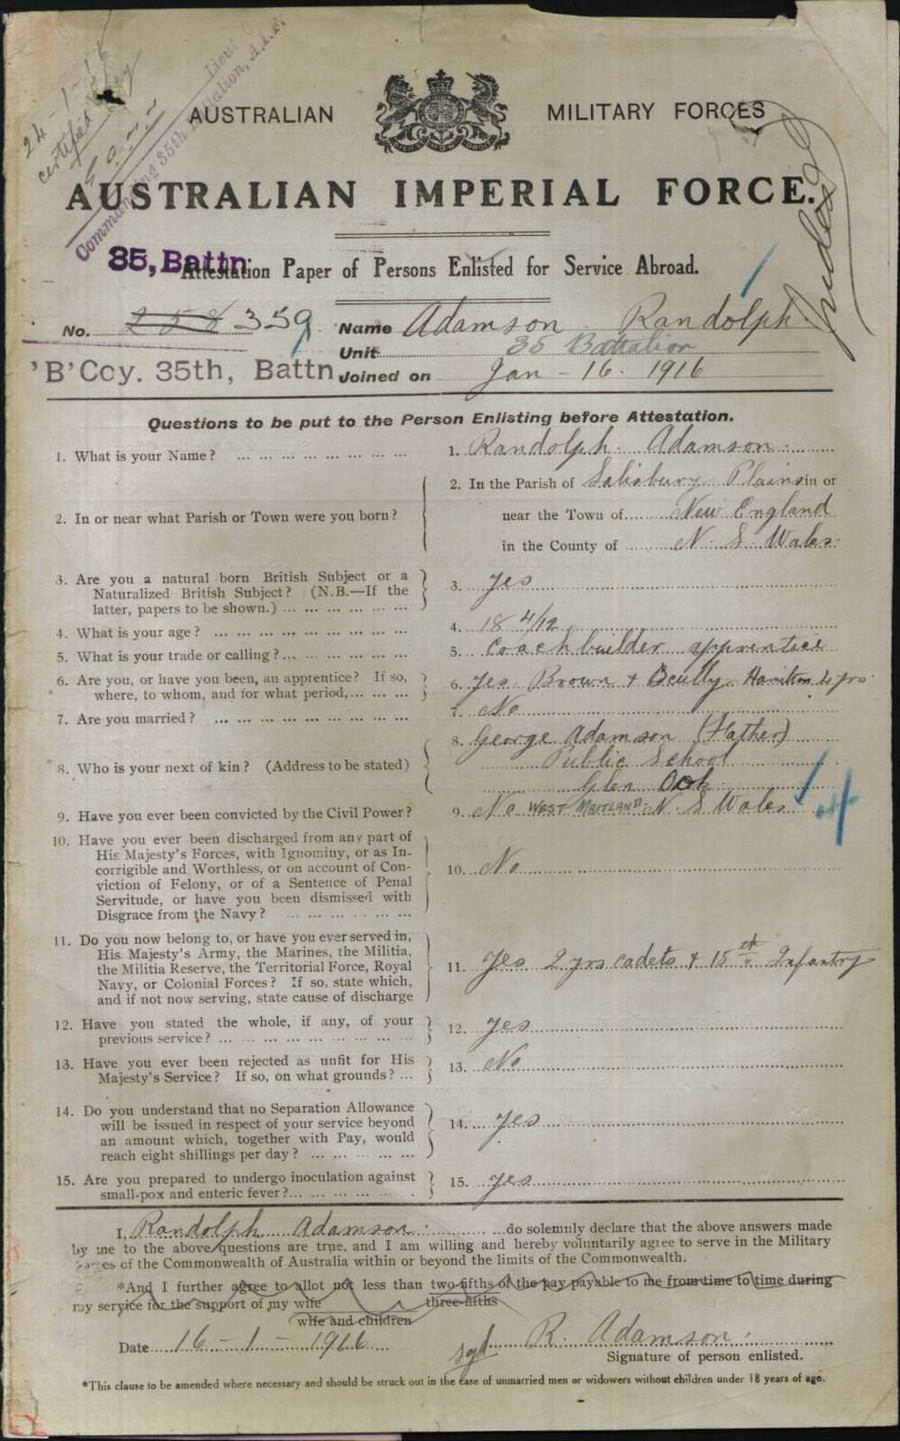 24-1-16
certified copy
Lieut
Commanding 35th Battalion, A.I.F.
AUSTRALIAN MILITARY FORCES
AUSTRALIAN IMPERIAL FORCE.
Indexed
35, Battn
Attestation Paper of Persons Enlisted for Service Abroad.
No. 258 359 Name Adamson Randolph
Unit 35 Battalion
'B' Coy. 35th, Battn. Joined on Jan - 16. 1916
Questions to be put to the Person Enlisting before Attestation.
1. What is your Name? ... 1. Randolph Adamson
2. In or near what Parish or Town were you born? 2. In the Parish of Salisbury Plains in or
near the Town of New England
in the County of N. S. Wales
3. Are you a natural born British Subject or a
Naturalized British Subject? (N.B.—If the 3. Yes
latter, papers to be shown.) ...
4. What is your age? ... 4. 18 4/12
5. What is your trade or calling? ... 5. Coachbuilder apprentice
6. Are you, or have you been, an apprentice? If so, 6. Yes Brown & Hamilton yrs.
where, to whom, and for what period, ...
7. Are you married? ... 7. No
8. Who is your next of kin? (Address to be stated) 8. George Adamson (Father)
Public School
Glen Oak
9. Have you ever been convicted by the Civil Power? 9. No WEST MAITLAND. N. S Wales
4
10. Have you ever been discharged from any part of
His Majesty's Forces, with Ignominy, or as In-
corrigible and Worthless, or on account of Con-
viction of Felony, or of a Sentence of Penal 10. No
Servitude, or have you been dismissed with
Disgrace from the Navy? ...
11. Do you now belong to, or have you ever served in,
His Majesty's Army, the Marines, the Militia,
the Militia Reserve, the Territorial Force, Royal 11. Yes 2 yrs cadets & 15th Infantry
Navy, or Colonial Forces? If so, state which,
and if not now serving, state cause of discharge
12. Have you stated the whole, if any, of your 12. Yes
previous service? ...
13. Have you ever been rejected as unfit for His 13. No
Majesty's Service? If so, on what grounds? ...
14. Do you understand that no Separation Allowance
will be issued in respect of your service beyond 14. Yes
an amount which, together with Pay, would
reach eight shillings per day? ...
15. Are you prepared to undergo inoculation against 15. Yes
small-pox and enteric fever? ...
I, Randolph Adamson do solemnly declare that the above answers made
by me to the above questions are true, and I am willing and hereby voluntarily agree to serve in the Military
Forces of the Commonwealth of Australia within or beyond the limits of the Commonwealth.
*And I further agree to allot not less than two-fifths of the pay payable to me from time to time during
three-fifths
my service for the support of my wife
wife and children
Date 16 - 1 - 1916 sgd R. Adamson.
Signature of person enlisted.
*This clause to be amended where necessary and should be struck out in the case of unmarried men or widowers without children under 18 years of age.